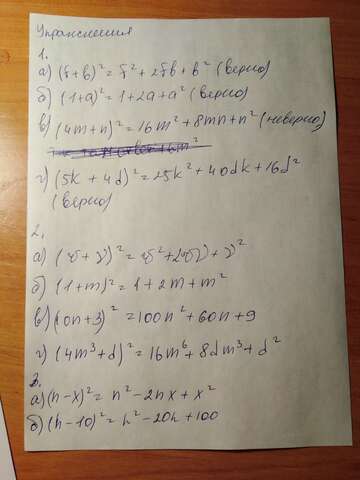 Упражнения
1.
а) (f+b)² = f² + 2fb + b² (верно)
б) (1+a)² = 1 + 2a + a² (верно)
в) (4m+n)² = 16m² + 8mn + n² (неверно)
г) (5k + 4d)² = 25k² + 40dk + 16d²
(верно)
2.
б) (1+m)² = 1 + 2m + m²
в) (10n+3)² = 100n² + 60n + 9
г) (4m³+d)² = 16m⁶ + 8dm³ + d²
3.
а) (n-x)² = n² - 2nx + x²
б) (h-10)² = h² - 20h + 100